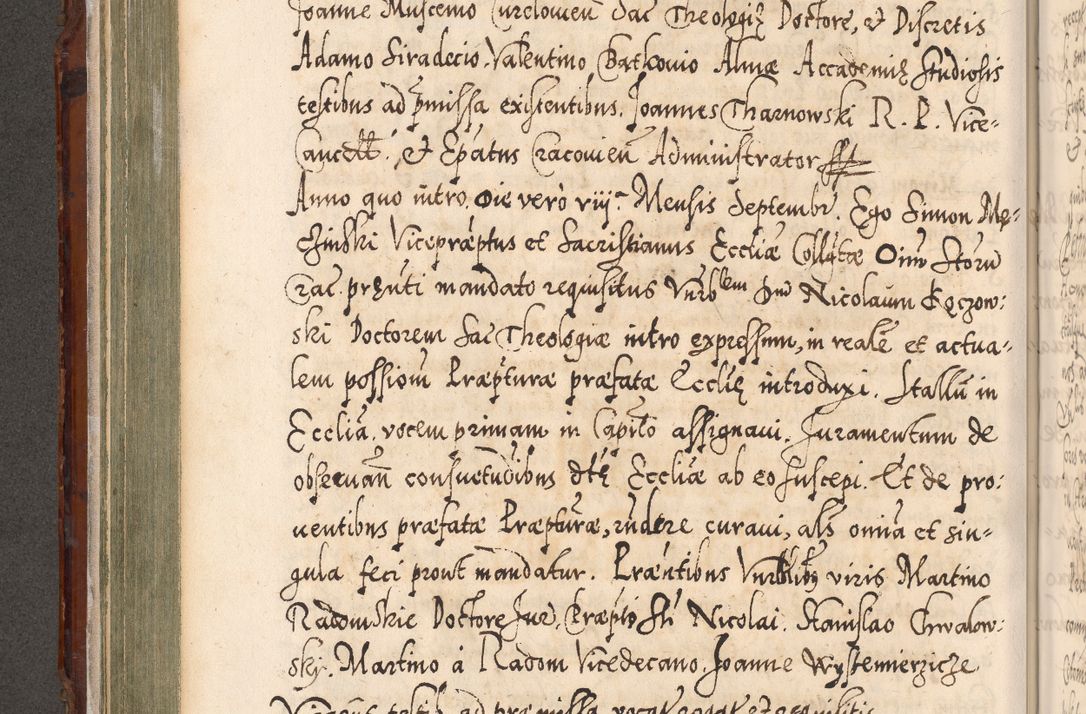 Joanne Muscenio Curelouien Sac Theologię Doctore, et Discretis
Adamo Siradecio, Valentino Batkouio Almæ Accademię Studiosis
testibus ad pmissa existentibus. Joannes Tharnowski R. P. Vice-
Cancell. et Epatus Cracouien Administrator
Anno quo intro, die vero viij Mensis Septembr. Ego Simon Mę-
Vicepræptus et Sacristianus Eccliæ Collgtæ Oim Storu
Crac. pręnti mandato requisitus Vnrblem Dnu Nicolaum Kęczow-
ski Doctorem Sac Theologiæ intro expressum, in reale et actua-
lem possioni Præpturæ præfatæ Ecclię introduxi. Stallu in
Ecclia, vocem primam in Capitlo assignaui. Juramentum de
obseruan consuetudibus dtę Eccliæ ab eo suscepi. Et de pro-
uentibus præfatæ Præpturæ, rndere curaui, als omia et sin-
gula feci prout mandatur. Præntibus Vnrblibus viris Martino
Radomskie Doctore Jur, Præpto Sti Nicolai. Stanislao Chwalow-
sky. Martino à Radom Vicedecano, Joanne Wystemierzicze
testib ad præmissa vocat rogat et requisitis